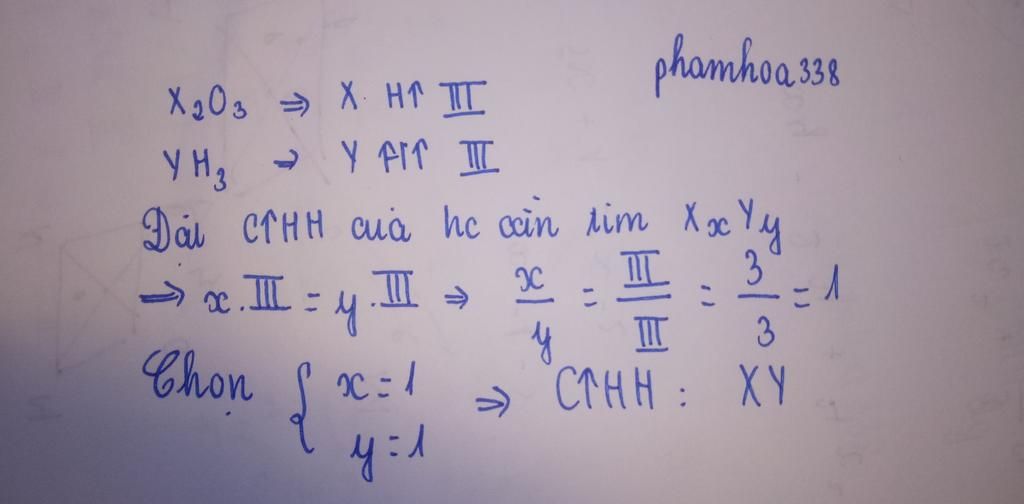 phamhoa338
X₂O₃ ⇒ X HT III
YH₃ → Y HT III
Đặt CTHH của hc cần tìm XxYy
⇒ x.III = y.III ⇒ x/y = III/III = 3/3 = 1
Chọn { x=1 ⇒ CTHH: XY
y=1